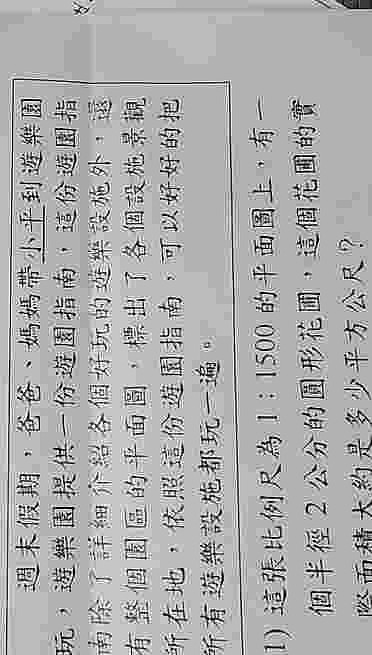 週末假期，爸爸、媽媽帶小平到遊樂園
玩，遊樂園提供一份遊園指南，這份遊園指
南除了詳細介紹各個好玩的遊樂設施外，還
有整個園區的平面圖，標出了各個設施景觀
所在地，依照這份遊園指南，可以好好的把
所有遊樂設施都玩一遍。
1) 這張比例尺為 1：1500 的平面圖上，有一
個半徑 2 公分的圓形花圃，這個花圃的實
際面積大約是多少平方公尺？